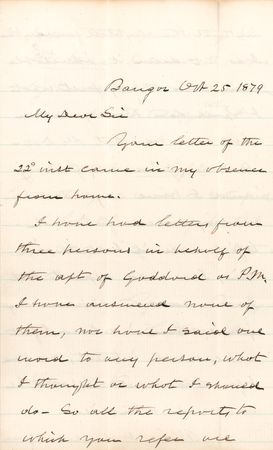 Bangor Oct 25 1879
My Dear Sir
Your letter of the
22d inst came in my absence
from home.
I have had letters from
three persons in behalf of
the apt of Goddard as P.M.
I have answered none of
them, nor have I said one
word to any person, what
I thought or what I should
do - So all the reports to
which you refer are